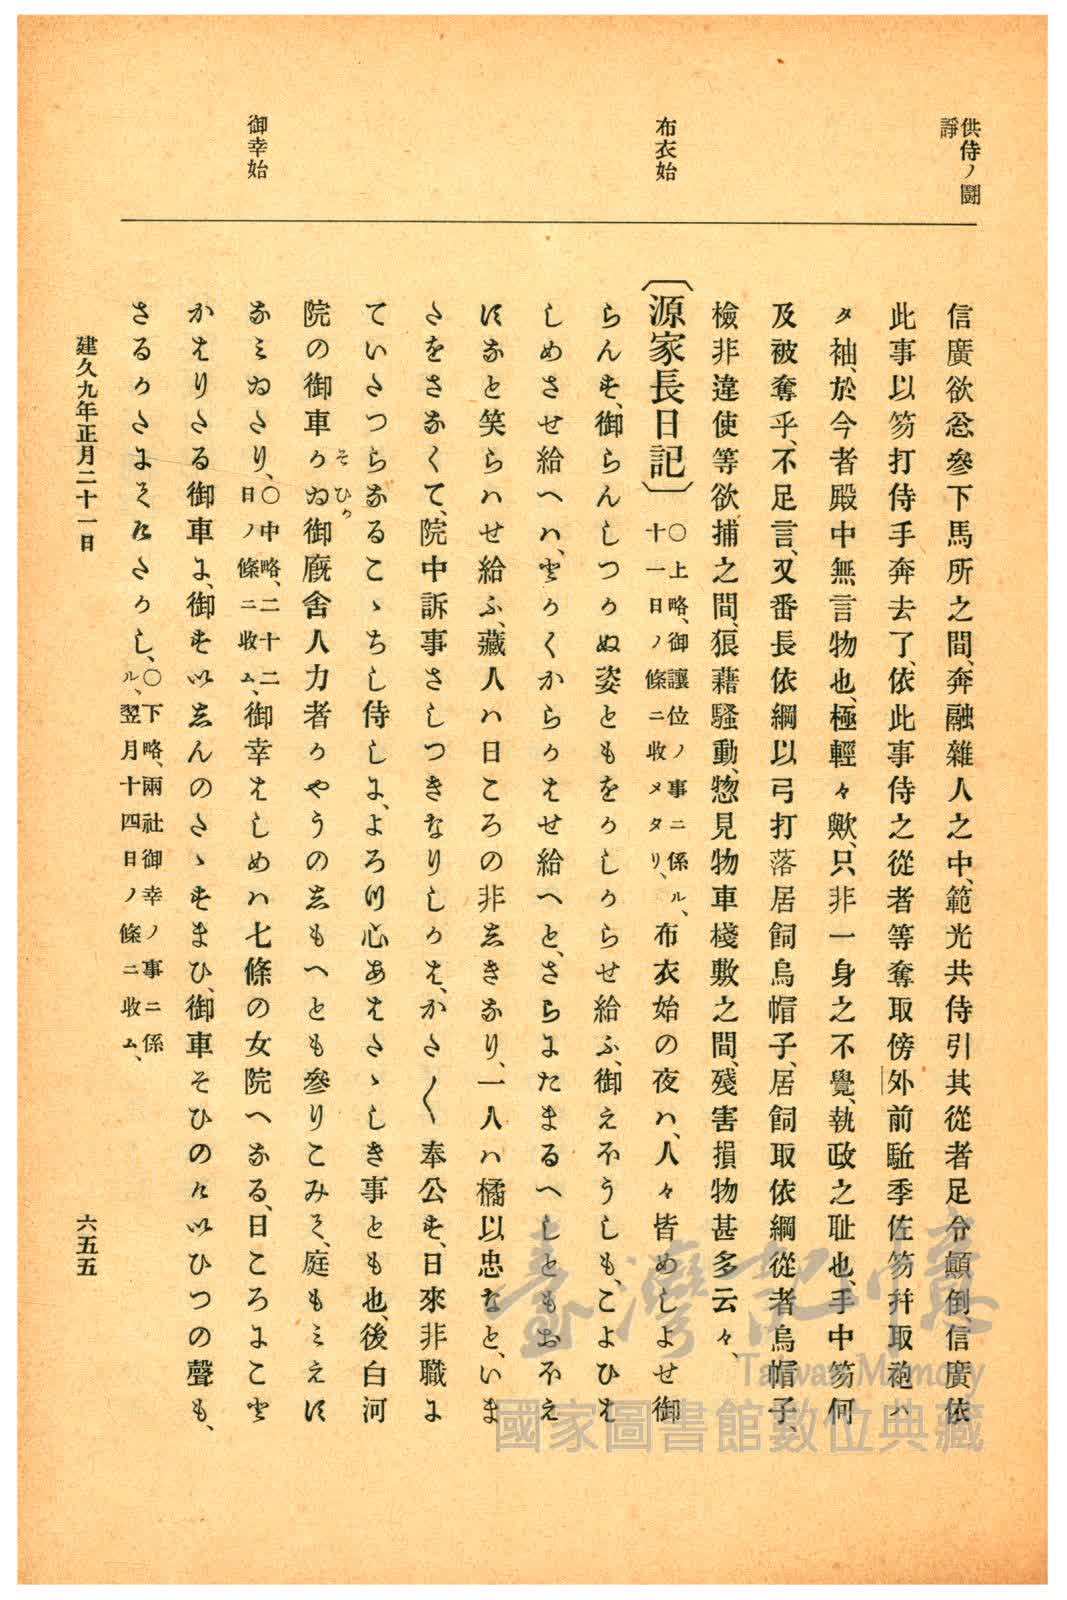 供侍ノ鬪
諍
布衣始
御幸始
信廣欲忩參下馬所之間、奔融雜人之中、範光共侍引其從者足令顚倒、信廣依
此事以笏打侍手奔去了、依此事侍之從者等奪取傍外前駈季佐笏幷取袍ハ
タ袖、於今者殿中無言物也、極輕々歟、只非一身之不覺、執政之耻也、手中笏何
及被奪乎、不足言、又番長依綱以弓打落居飼烏帽子、居飼取依綱從者烏帽子、
檢非違使等欲捕之間、狼藉騷動、惣見物車棧敷之間、殘害損物甚多云々、
〔源家長日記〕〇上略、御讓位ノ事ニ係ル、
十一日ノ條ニ收メタリ、布衣始の夜ハ、人々皆めしよせ御
らんせ、御らんしつゝぬ姿ともをかしからせ給ふ、御えぞうしも、こよひハ
しめさせ給へハ、とかくからかはせ給へと、さらにたまるへしともおぼえ
ぬなと笑らハせ給ふ、藏人ハ日ころの非ゑきなり、一人ハ橘以忠なと、いま
たをさなくて、院中訴事さしつきなりしかは、かた〱奉公せ、日來非職に
ていたつらなるこゝちし侍しに、よろつ心あはたゝしき事とも也、後白河
院の御車かゐ御廐舍人力者かやうのゑもへとも參りこみそ、庭もミえぬ
そひか
なミゐたり、〇中略、二十二
日ノ條ニ收ム、御幸はしめハ七條の女院へなる、日ころにこと
かはりたる御車に、御せいゑんのたゝせまひ、御車そひのけいひつの聲も、
さるかたにそけたかし、〇下略、兩社御幸ノ事ニ係
ル、翌月十四日ノ條ニ收ム、
建久九年正月二十一日
六五五
臺灣記憶
Taiwan Memory
國家圖書館數位典藏